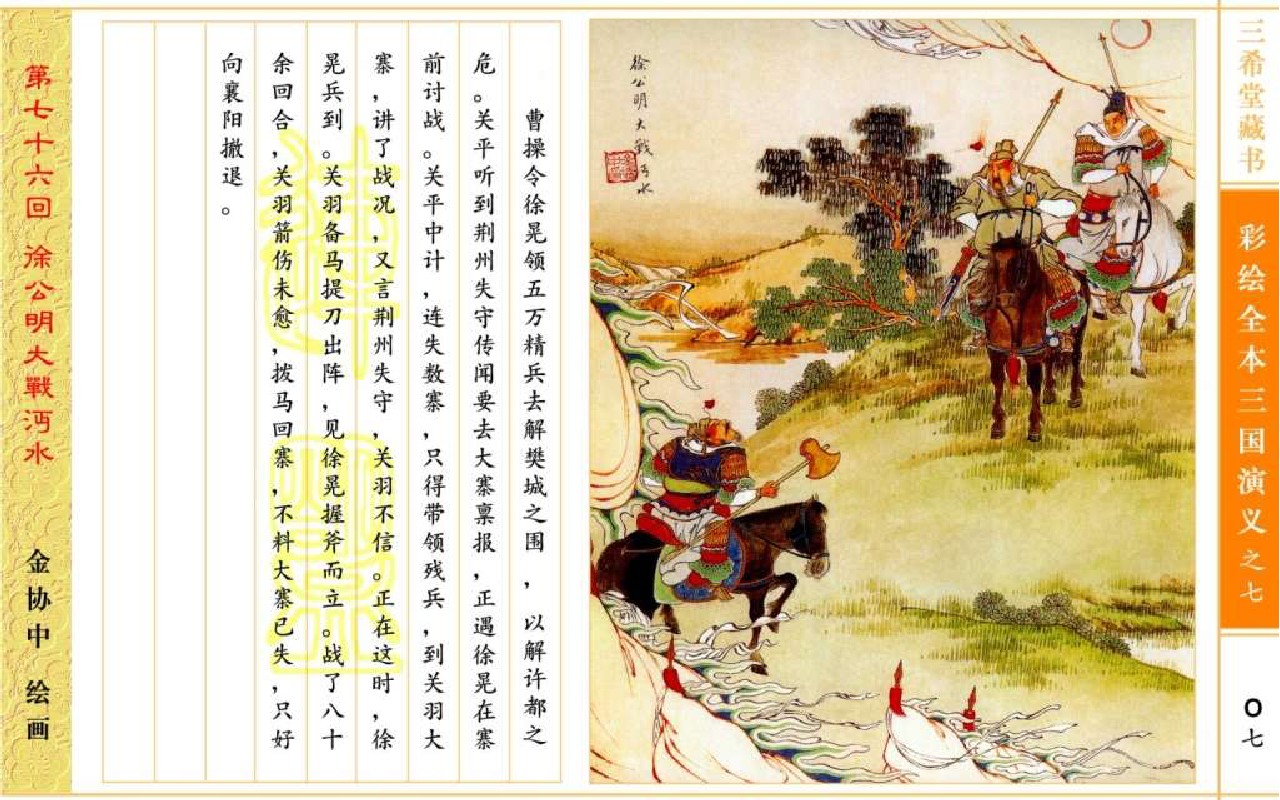 三希堂藏书
彩绘全本三国演义之七
〇七
徐公明大戰沔水
曹操令徐晃领五万精兵去解樊城之围，以解许都之
危。关平听到荆州失守传闻要去大寨禀报，正遇徐晃在寨
前讨战。关平中计，连失数寨，只得带领残兵，到关羽大
寨，讲了战况，又言荆州失守，关羽不信。正在这时，徐
晃兵到。关羽备马提刀出阵，见徐晃握斧而立。战了八十
余回合，关羽箭伤未愈，拨马回寨，不料大寨已失，只好
向襄阳撤退。
第七十六回 徐公明大戰沔水 金协中 绘画